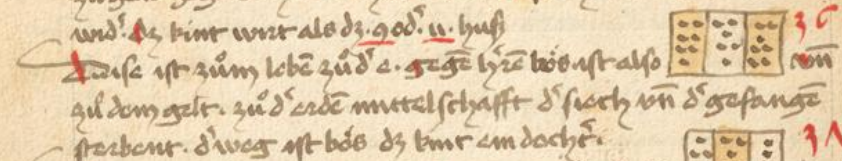 wid᷑. dz kint wirt als dz .9 od᷑. 11. huß
Dise ist zům lebē zů d᷑ e. gegē h᷑rē bös. ist also vñ
zů dem gelt. zů d᷑ erdē mittelschafft d᷑ siech vñ d᷑ gefangē
sterbent. d᷑ weg ist bös dz kint ein docht᷑.